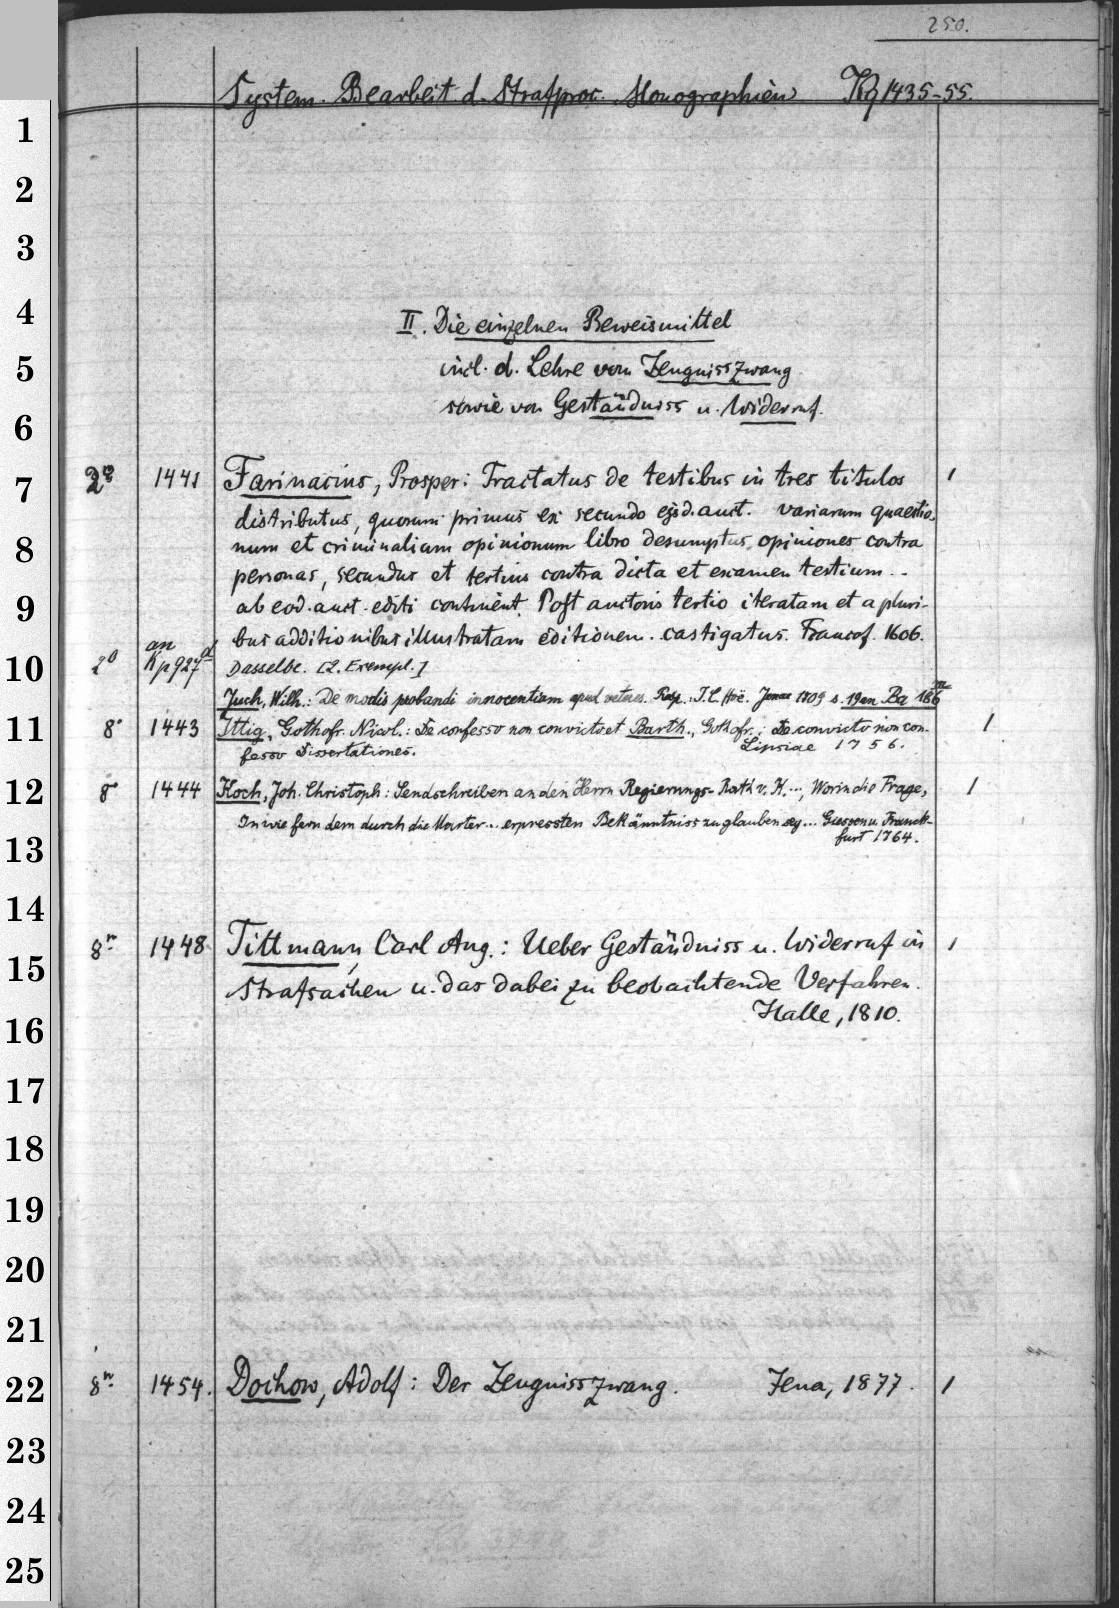 250.
System. Bearbeit d. Strafproc. Monographien Kq 1435-55.
1
2
3
4 II. Die einzelnen Beweismittel
5 incl. d. Lehre vom Zeugnisszwang
6 sowie von Geständniss u. Widerruf.
7 1441 Farinacius, Prosper: Tractatus de testibus in tres titulos 1
distributus, quorum primus ex secundo ejsd. auct. variarum quaestio,
8 num et criminalium opinionum libro desumptus, opiniones contra
personas, secundus et tertius contra dicta et examen testium..
9 ab eod. auct. editi continent. Post auctoris tertio iteratam et a pluri-
bus additionibus illustratam editionem. castigatus. Francof. 1606.
10 2° an Kp 927d Dasselbe. [2. Exempl.]
Juch, Wilh.: De modis probandi innocentiam apud veteres. Resp. J.C. Hoë. Jenae 1709 s. 19 an Ba 186m
11 8° 1443 Ittig, Gothofr. Nicol.: De confesso non convicto et Barth., Gothofr.: De convicto non con- 1
fesso Dissertationes. Lipsiae 1756.
12 8° 1444 Koch, Joh. Christoph: Sendschreiben an den Herrn Regierungs-Rath v. K..., Worin die Frage, 1
In wie fern dem durch die Marter... erpressten Bekänntniss zu glauben sey... Giessen u. Franck-
13 furt 1764.
14
8° 1448 Tittmann, Carl Aug.: Ueber Geständniss u. Widerruf in 1
15 Strafsachen u. das dabei zu beobachtende Verfahren.
16 Halle, 1810.
17
18
19
20
21
22 8° 1454. Dochow, Adolf: Der Zeugnisszwang. Jena, 1877. 1
23
24
25